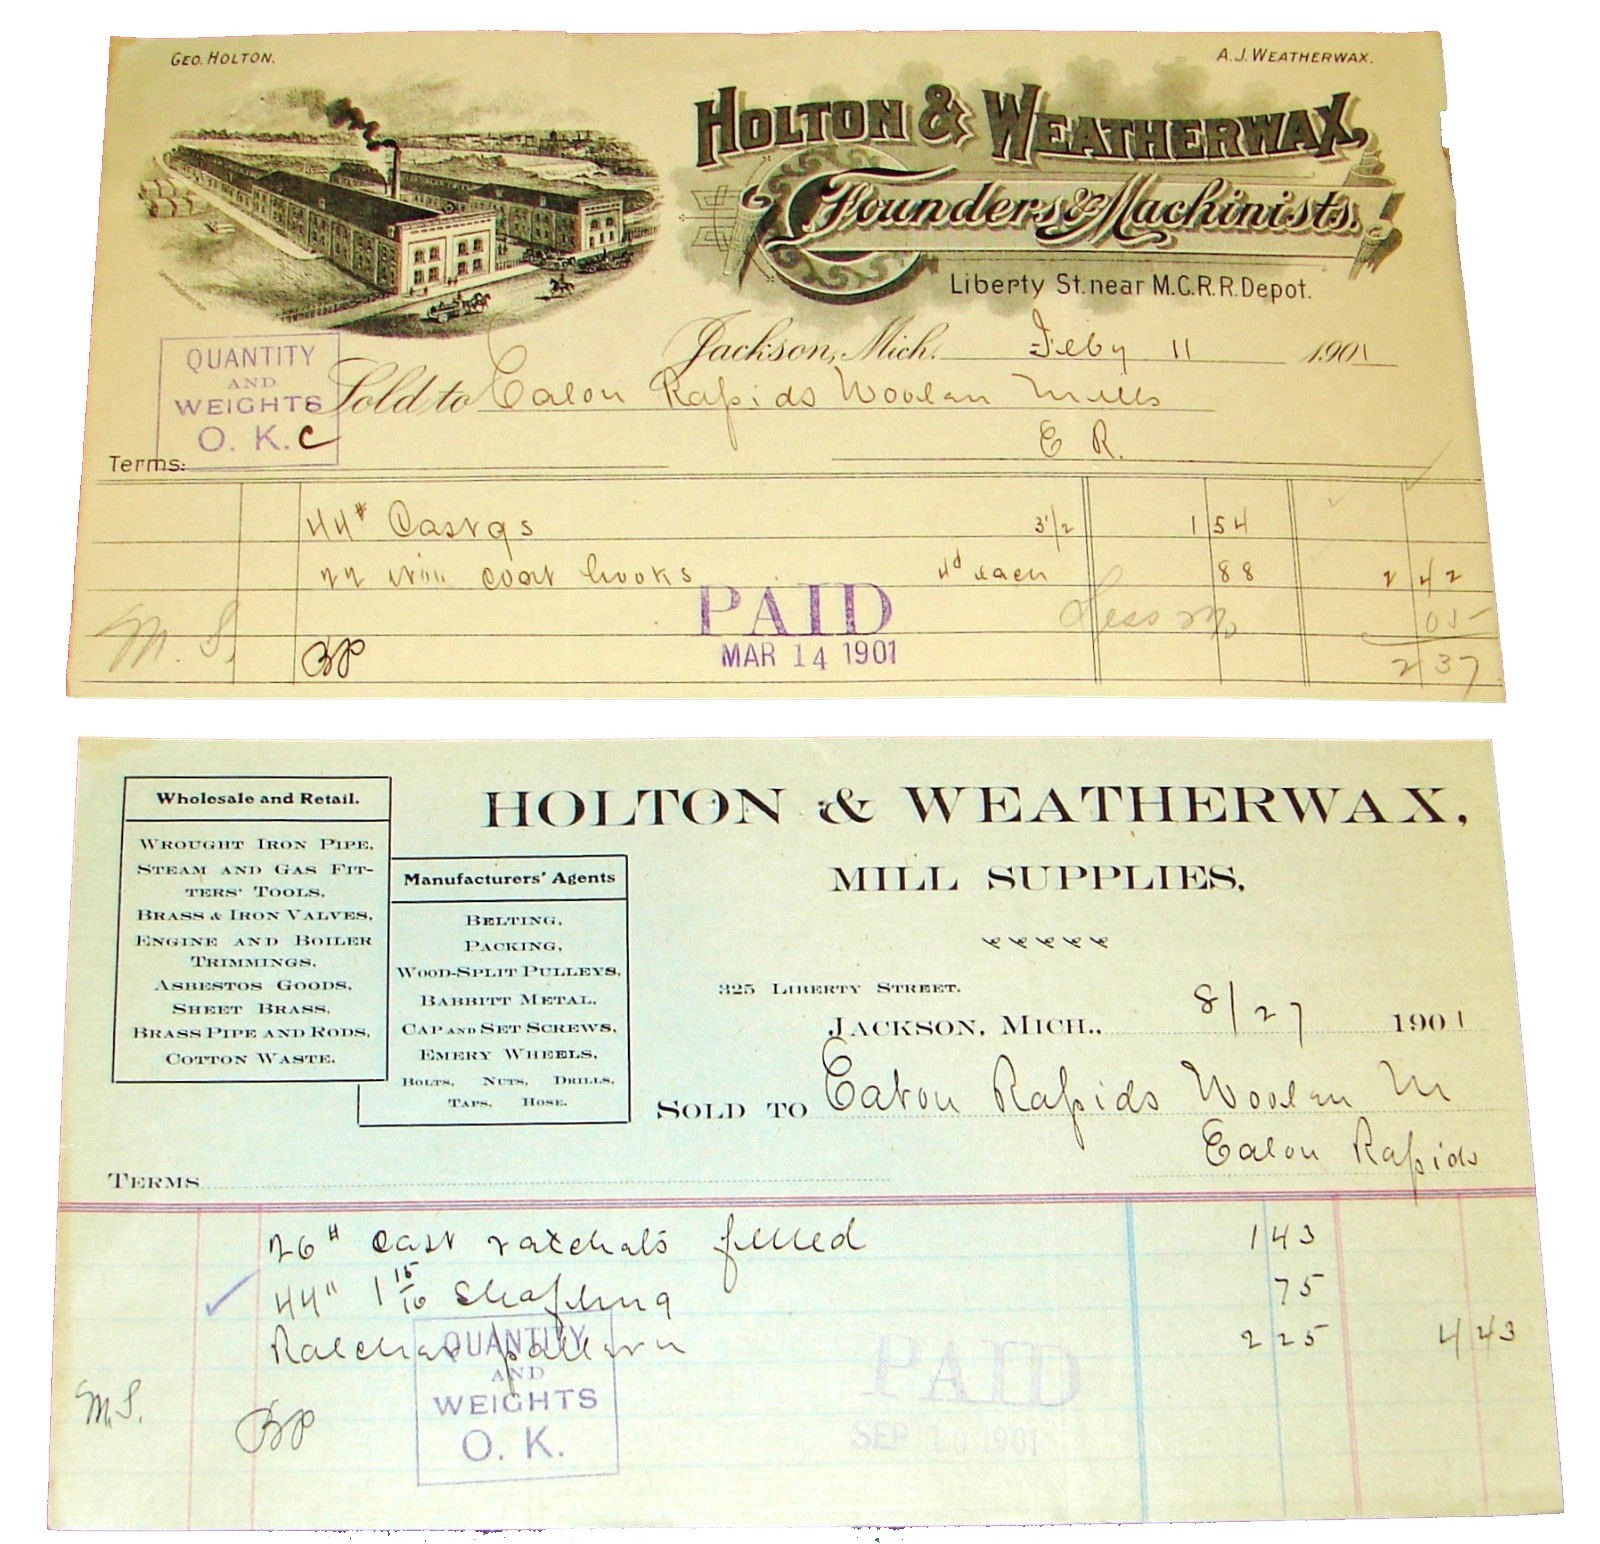 GEO. HOLTON.
A. J. WEATHERWAX.
HOLTON & WEATHERWAX,
Founders & Machinists.
Liberty St. near M.C.R.R. Depot.
Jackson, Mich. Feby 11 1901
QUANTITY
AND
WEIGHTS
O. K. C
Sold to Eaton Rapids Woolen Mills
E R.
Terms:
44# Castgs 3 1/2 1 54
22 coat hooks 4d each 88 2 42
Less 05
M. S. BP 2 37
PAID
MAR 14 1901
HOLTON & WEATHERWAX,
MILL SUPPLIES,
Wholesale and Retail.
WROUGHT IRON PIPE,
STEAM AND GAS FIT-
TERS' TOOLS,
BRASS & IRON VALVES,
ENGINE AND BOILER
TRIMMINGS,
ASBESTOS GOODS,
SHEET BRASS,
BRASS PIPE AND RODS,
COTTON WASTE.
Manufacturers' Agents
BELTING,
PACKING,
WOOD-SPLIT PULLEYS,
BABBITT METAL,
CAP AND SET SCREWS,
EMERY WHEELS,
BOLTS, NUTS, DRILLS,
TAPS, HOSE.
325 LIBERTY STREET.
JACKSON, MICH., 8/27 1901
SOLD TO Eaton Rapids Woolen M
Eaton Rapids
TERMS
26# cast ratchets filled 1 43
44" 1 15/16 Shafting 75
Ratchet pattern 2 25 4 43
QUANTITY
AND
WEIGHTS
O. K.
M. S.
BP
PAID
SEP 10 1901